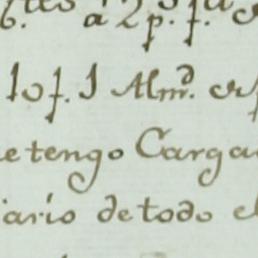 6. a 2 p. f.
10 f. 1 Alm.d
etengo Carga
iario de todo e